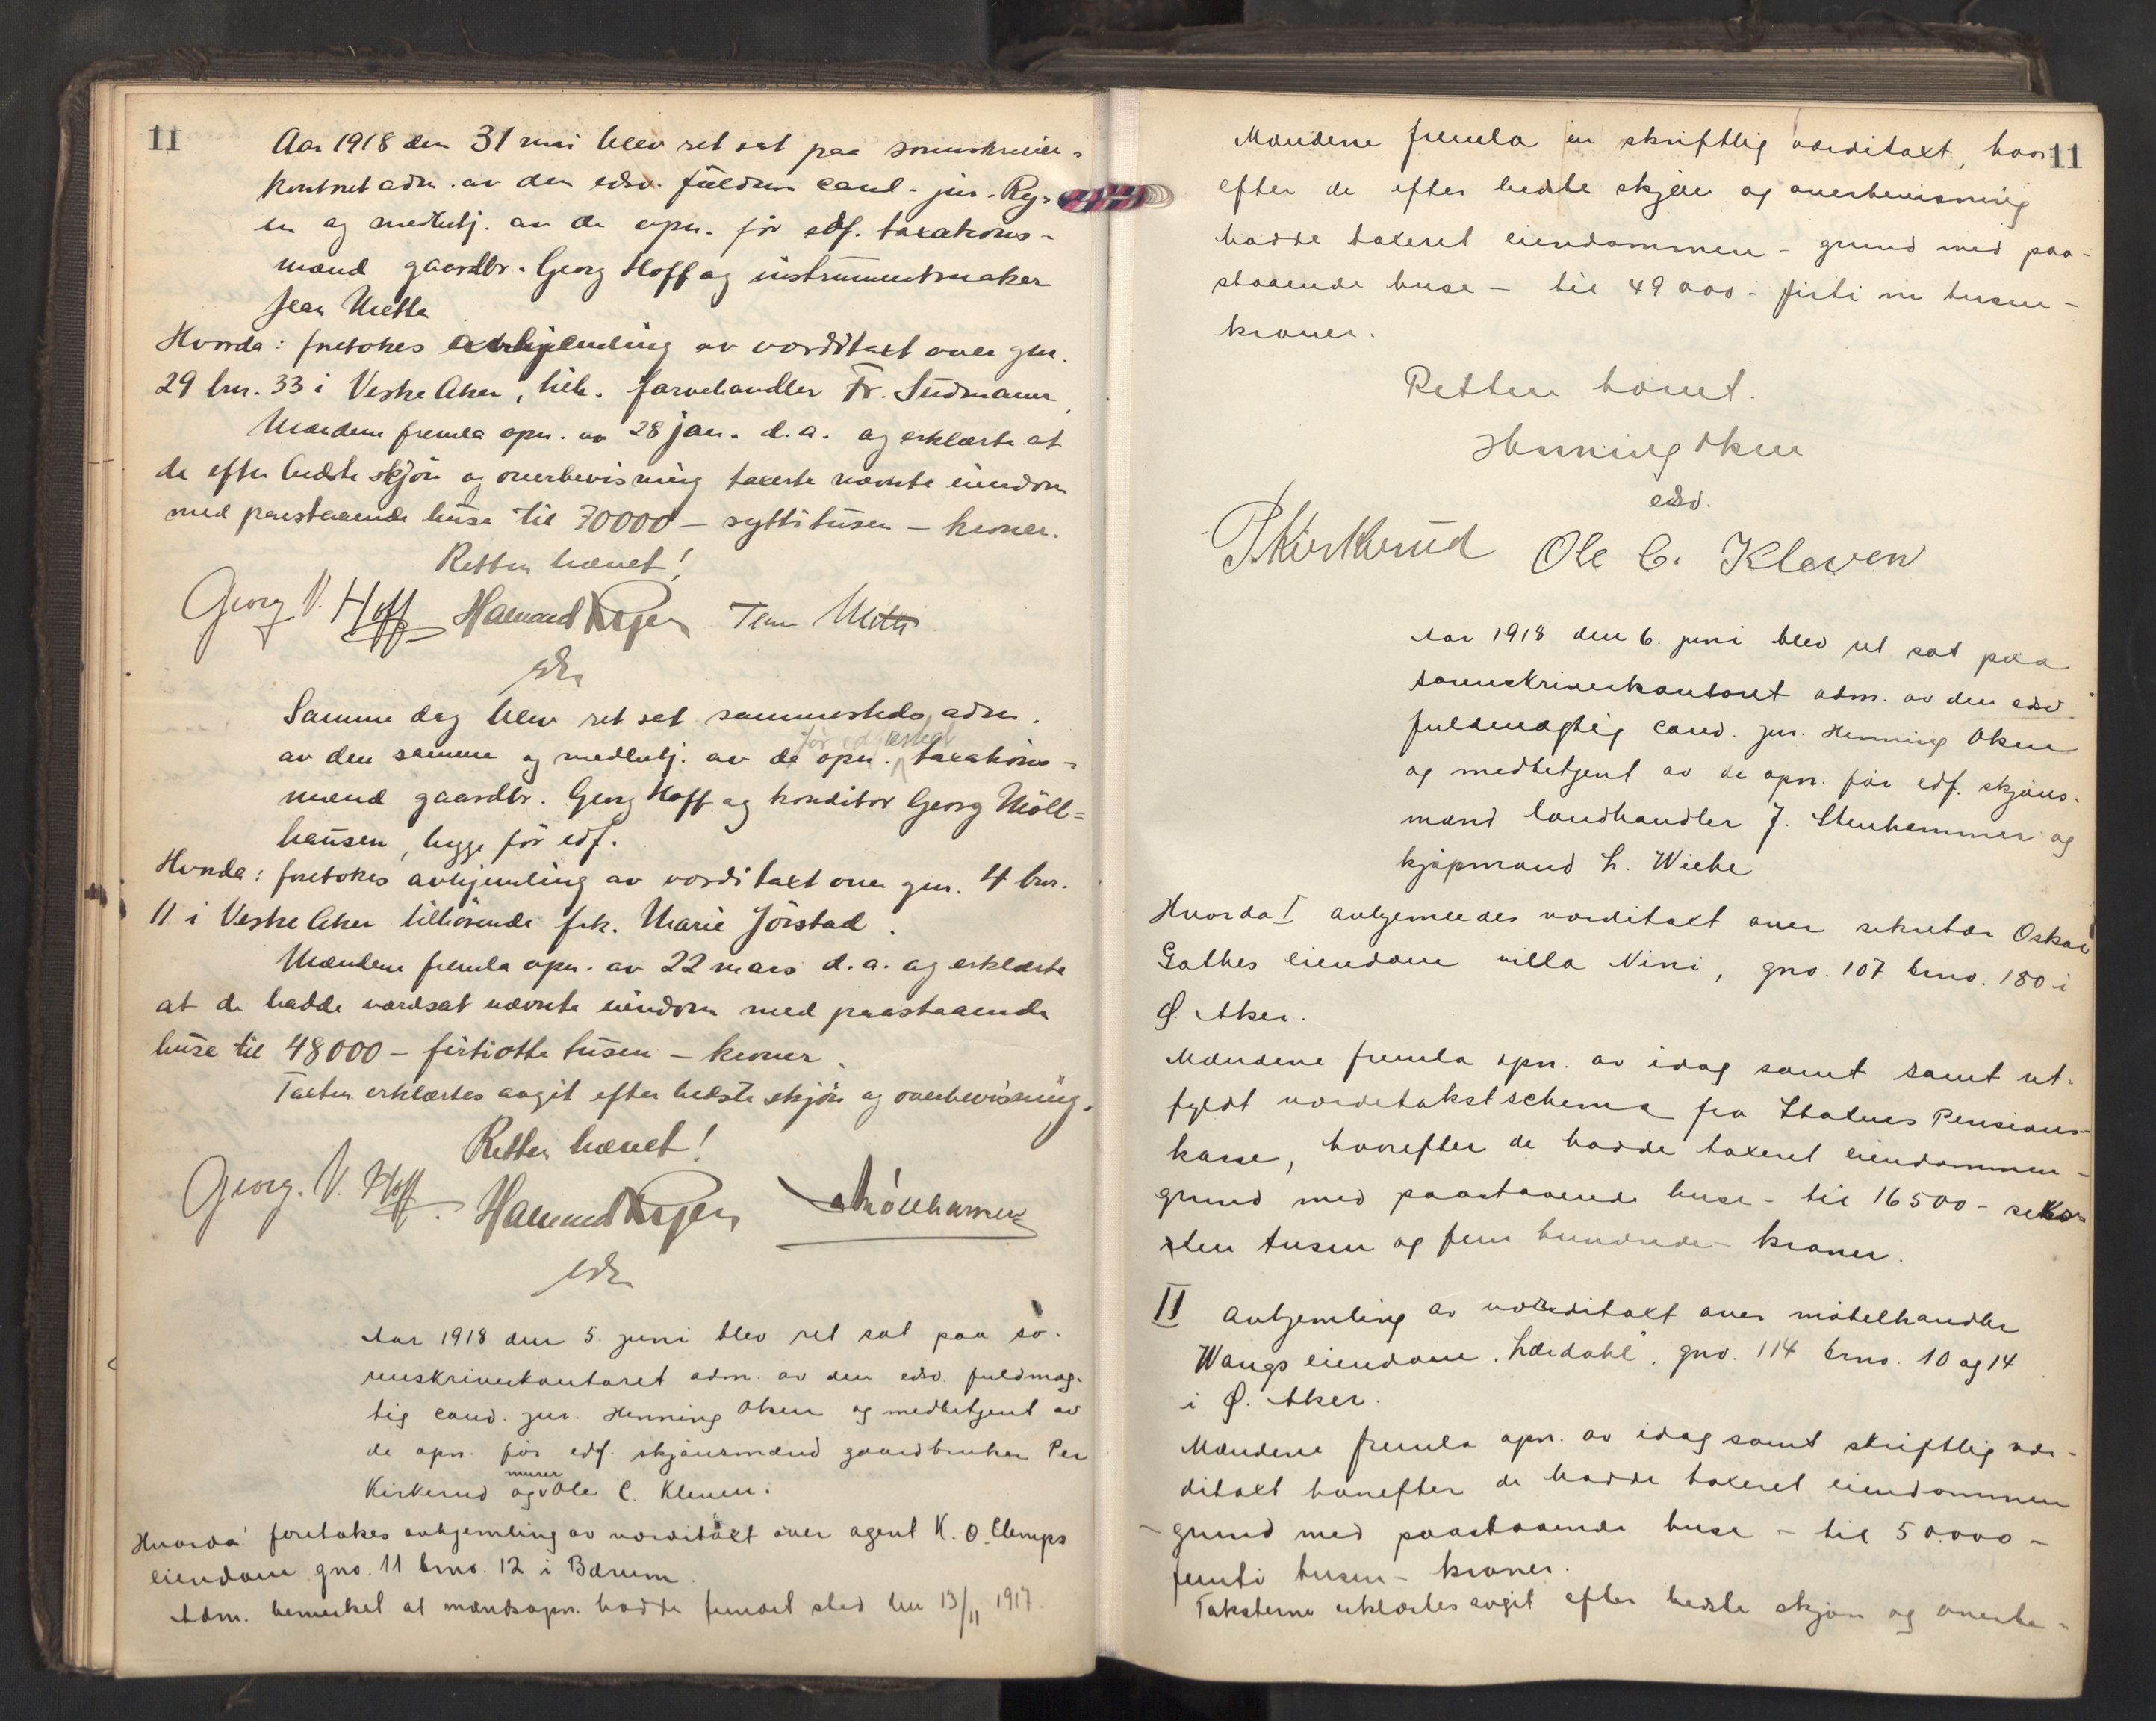 11
Aar 1918 den 31 mai blev ret sat paa sorenskriver-
kontoret adm. av den edsv. fuldm cand. jur. Ry-
en og medbetj. av de opn. før edf. taxations-
mænd gaardbr. Georg Hoff og instrumentmaker
Jean Mette
Hvorda: foretokes avhjemling av værditaxt over gnr.
29 brn. 33 i Vestre Aker, tilh. farvehandler Fr. Sudmann.
Mændene fremla opn. av 28 jan. d.a. og erklærte at
de efter bedste skjøn og overbevisning taxerte nævnte eiendom
med paastaaende huse til 70000 – sytti tusen – kroner.
Retten hævet!
Georg V. Hoff Hamund Ryen Jean Mette
edsv
Samme dag blev ret sat sammesteds, adm.
av den samme og medbetj. av de opn. før ed taxations-
mænd gaardbr. Georg Hoff og konditor Georg Möll-
hausen, begge før edf.
Hvorda: foretokes avhjemling av værditaxt over gnr. 4 bnr.
11 i Vestre Aker tilhørende frk. Marie Jörstad.
Mændene fremla opn. av 22 mars d.a. og erklærte
at de hadde værdsat nævnte eiendom med paastaaende
huse til 48000 – firtiotte tusen – kroner.
Taxten erklærtes avgit efter bedste skjøn og overbevisning.
Retten hævet!
Georg. V. Hoff. Hamund Ryen Möllhausen
edsv
Aar 1918 den 5. juni blev ret sat paa so-
renskriverkontoret adm. av den edsv. fuldmæg-
tig cand. jur. Henning Oken og medbetjent av
de opn. før edf. skjønsmænd gaardbruker Per
Kirkerud og murer Ole C. Kleven.
Hvorda foretokes avhjemling av værditaxt over agent K. O. Clemps
eiendom gno. 11 brno. 12 i Bærum.
Adm. bemerket at mændsopn. hadde fundet sted den 13/11 1917.
11
Mændene fremla en skriftlig værditaxt, hvor-
efter de efter bedste skjøn og overbevisning
hadde taxeret eiendommen – grund med paa-
staaende huse – til 49 000 – firti ni tusen –
kroner.
Retten hævet.
Henning Oken
edsv.
P Kirkerud Ole C. Kleven
Aar 1918 den 6. juni blev ret sat paa
sorenskriverkontoret adm. av den edsv.
fuldmægtig cand. jur. Henning Oken
og medbetjent av de opn. før edf. skjøns-
mænd landhandler J. Stenhammer og
kjøpmand L. Wiebe
Hvorda I avhjemledes værditaxt over sekretær Oskar
Gathes eiendom villa Nini, gno. 107 brno. 180 i
Ø. Aker.
Mændene fremla opn. av idag samt samt ut-
fyldt værditakstschema fra Statens Pensions-
kasse, hvorefter de hadde taxeret eiendommen –
grund med paastaaende huse – til 16500 – seks-
ten tusen og fem hundrede – kroner.
II Avhjemling av værditaxt over møbelhandler
Wangs eiendom „Lædahl“, gno. 114 brno. 10 og 14
i Ø. Aker.
Mændene fremla opn. av idag samt skriftlig vær-
ditaxt hvorefter de hadde taxeret eiendommen
– grund med paastaaende huse – til 50.000 –
femti tusen – kroner.
Taksterne erklærtes avgit efter bedste skjøn og overbe-